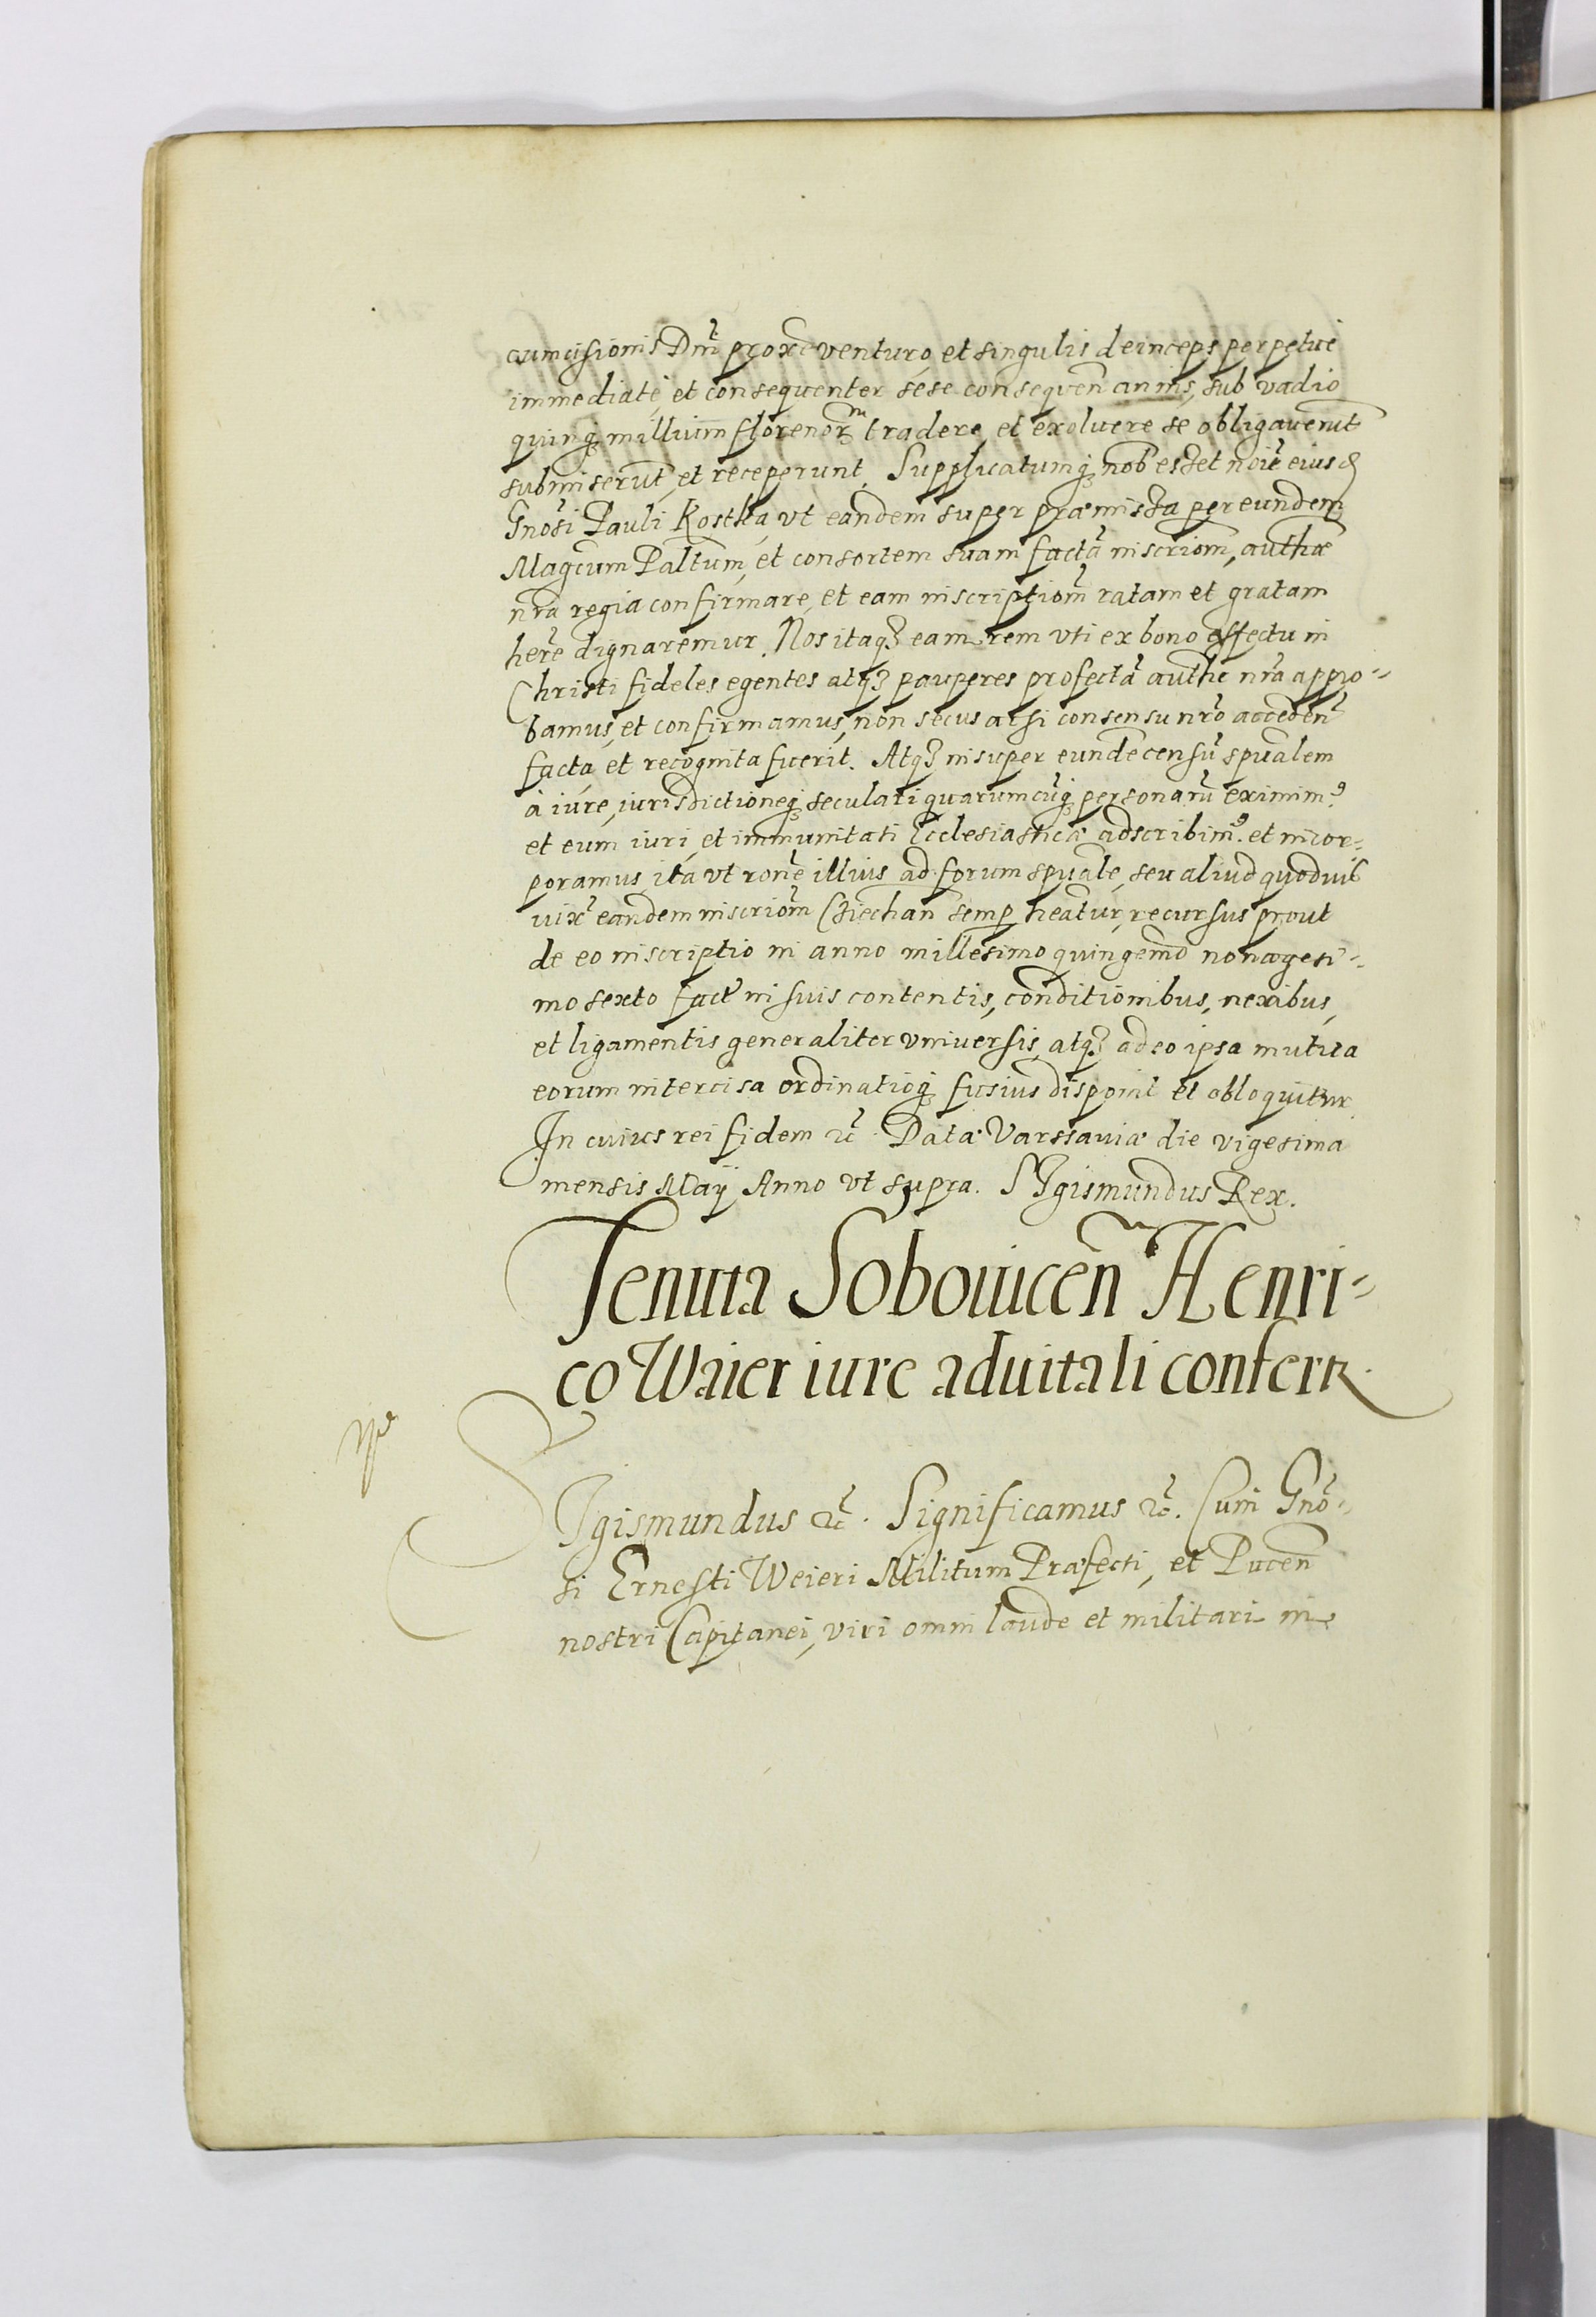 cumcisionis Dni proxe venturo, et singulis deinceps perpetue
immediate, et consequenter sese consequen annis, sub vadio
quinq millium florenor tradere, et exoluere se obligauerut
submiserut, et receperunt. Supplicatumq nob esset noie eiusd
Gnosi Pauli Kostka, vt eandem super præmissa per eundem
Magcum Paltum, et consortem suam facta inscriom, authæ
nra regia confirmare, et eam inscriptiom ratam et gratam
here dignaremur. Nos itaq eam rem vti ex bono affectu in
Christi fideles egentes atq pauperes profecta authe nra appro-
bamus, et confirmamus, non secus ac si consensu nro acceden
facta, et recognita fuerit. Atq insuper eunde censu spualem
à iure, iurisdictioneq seculari quarumcuq personaru eximim9
et eum iuri, et immunitati Ecclesiasticæ adscribim9, et incor-
poramus ita vt rone illius ad forum spuale, seu aliud quoduis
iuxe eandem inscriom Cziechan semp heatur, recursus prout
de eo inscriptio in anno millesimo quingemo nonagesi-
mo sexto fact in suis contentis, conditionibus, nexibus,
et ligamentis generaliter vniuersis, atq adeo ipsa mutua
eorum intercisa ordinatioq fusius disponit et obloquitur.
In cuius rei fidem &c. Datæ Varssauiæ die vigesima
mensis Maÿ Anno vt supra. SIgismundus Rex.
Tenuta Sobouicen Henri-
co Waier iure aduitali confertr.
SIgismundus &c. Significamus &c. Cum Gno-
si Ernesti Weieri Militum Præfecti, et Pucen
nostri Capitanei, viri omni laude et militari in-